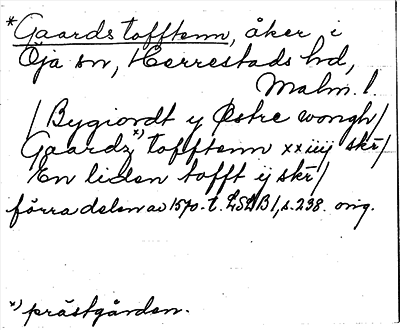 *Gaards tofftenn, åker i
Öja sn, Herrestads hd,
Malm. l.
/Bygiordt y Østre wongh/
Gaardz *) tofftenn xxiiij skr/
En liden tofft ij skr/
förra delen av 1570-t. LSDB1, s. 238. orig.
*) prästgården.